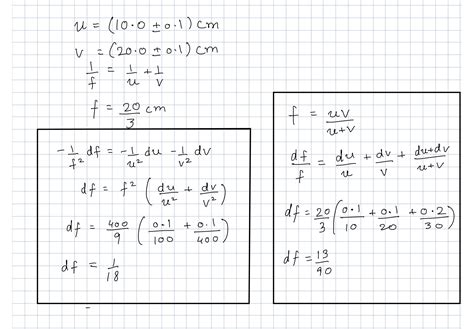 u = (10.0 ± 0.1) cm
v = (20.0 ± 0.1) cm
1/f = 1/u + 1/v
f = 20/3 cm
-1/f² df = -1/u² du - 1/v² dv
df = f² (du/u² + dv/v²)
df = 400/9 (0.1/100 + 0.1/400)
df = 1/18
-
f = uv/u+v
df/f = du/u + dv/v + du+dv/u+v
df = 20/3 (0.1/10 + 0.1/20 + 0.2/30)
df = 13/90